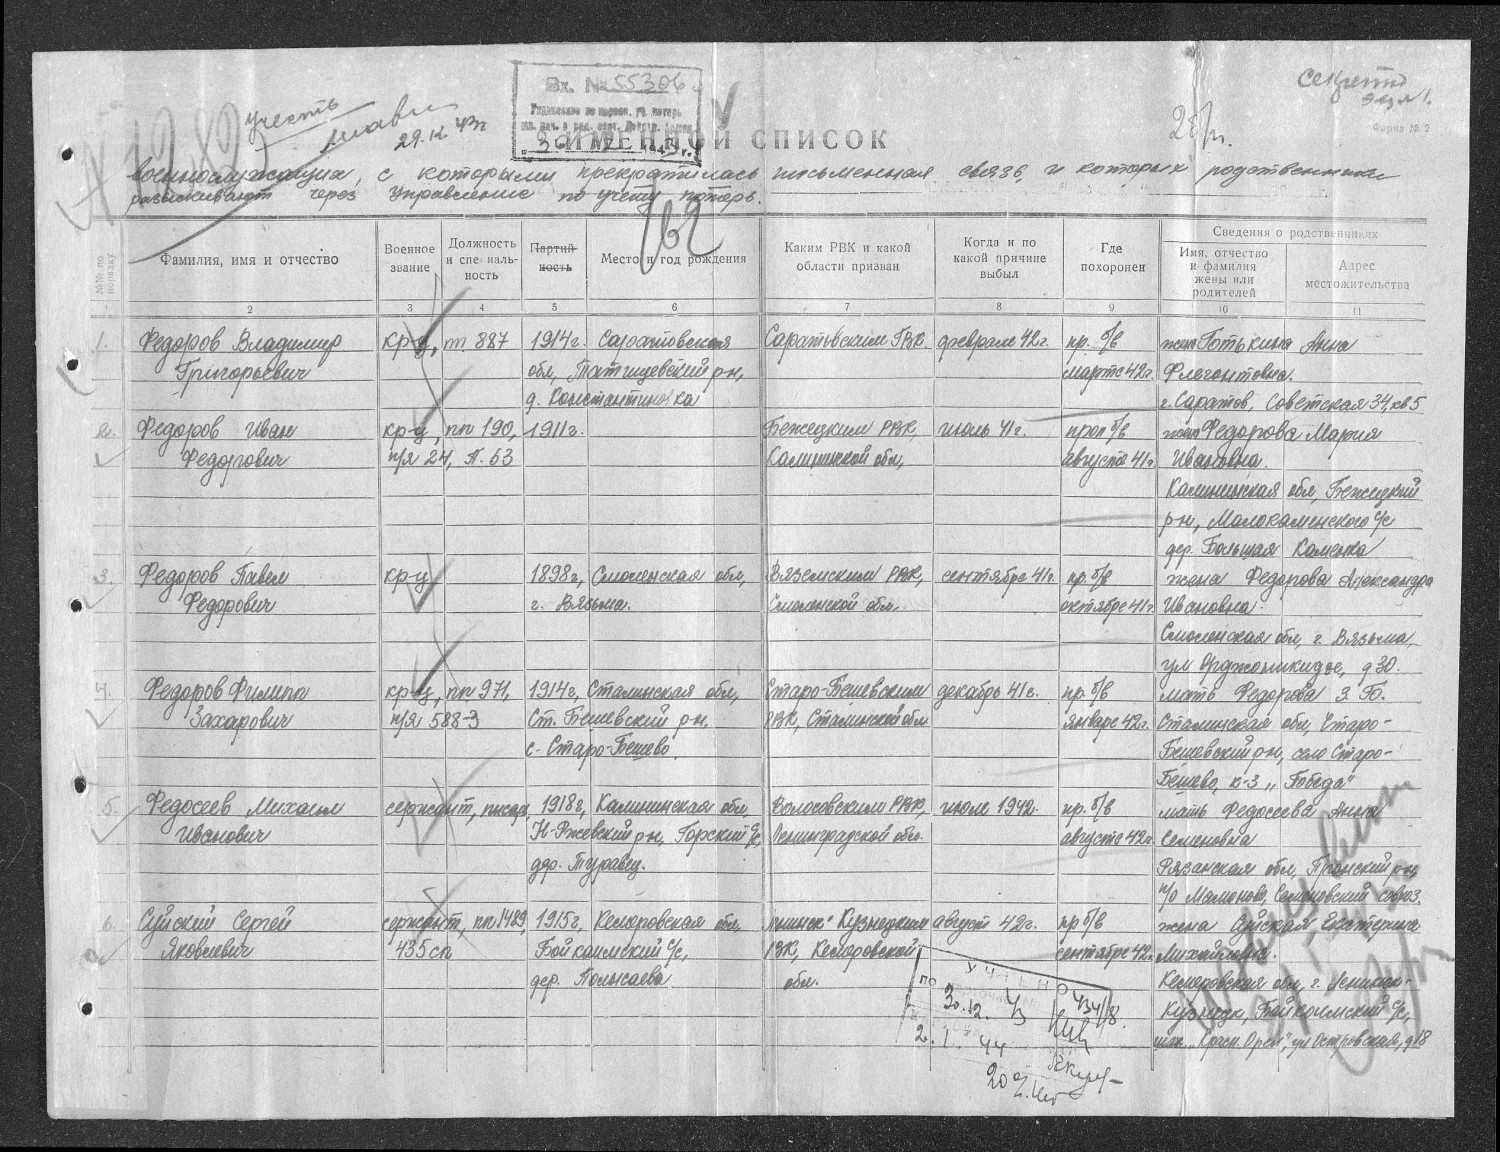 Секретно
экз №1.
Форма № 2
Вх. № 55306
учесть
29.12.43г
ИМЕННОЙ СПИСОК
военнослужащих, с которыми прекратилась письменная связь и которых родственники
разыскивают через Управление по учету потерь.
№№ по порядку
Фамилия, имя и отчество
Военное звание
Должность и специаль-ность
Партий-ность
Место и год рождения
Каким РВК и какой области призван
Когда и по какой причине выбыл
Где похоронен
Сведения о родственниках
Имя, отчество и фамилия жены или родителей
Адрес местожительства
2 3 4 5 6 7 8 9 10 11
1. Федоров Владимир кр-ц, п. 887 1914г. Саратовская Саратовским ГВК. феврале 42г. пр. б/в жена Готькина Анна
Григорьевич обл, Татищевский р-н, марте 42г. Флегонтовна.
д. Константиновка г. Саратов, Советская 34, кв 5
2. Федоров Иван кр-ц, пп 190, 1911г. Бежецким РВК, июль 41г. проп б/в жена Федорова Мария
Федорович п/я 24, Л. 53 Калининской обл, августе 41г. Ивановна.
Калининская обл, Бежецкий
р-н, Малокаменского с/с
дер. Большая Каменка
3. Федоров Павел кр-ц 1898г, Смоленская обл, Вяземским РВК, сентябре 41г. пр. б/в жена Федорова Александра
Федорович г. Вязьма. Смоленской обл. октябре 41г. Ивановна.
Смоленская обл, г. Вязьма,
ул Орджоникидзе, д 30.
4. Федоров Филипп кр-ц, пп 971, 1914г, Сталинская обл, Старо-Бешевским декабрь 41г. пр. б/в мать Федорова З. Б.
Захарович п/я 588-3 Ст. Бешевский р-н, РВК, Сталинской обл январе 42г. Сталинская обл, Старо-
с. Старо-Бешево. Бешевский р-н, село Старо-
Бешево, к-з „Победа"
5. Федосеев Михаил сержант, писарь 1918г, Калининская обл, Волосовским РВК, июле 1942. пр. б/в мать Федосеева Анна
Иванович Н-Ржевский р-н, Горский с/с, Ленинградской обл. августе 42г. Семеновна
дер. Туравец. Рязанская обл, Пронский р-н,
п/о Мамоново, Семеновский совхоз.
6. Суйский Сергей сержант, пп 1489, 1915г, Кемеровская обл, Ленинск-Кузнецким август 42г. пр б/в жена Суйская Екатерина
Яковлевич 435 сп Бойкаимский с/с, РВК, Кемеровской сентябре 42г. Михайловна.
дер. Полысаево обл. Кемеровская обл, г. Ленинск-
Кузнецк, Байкаимский с/с,
шах. „Красн. Орел", ул Островская, д 18
УЧТЕНО
ПО
30.12. 43
2. 1. 44